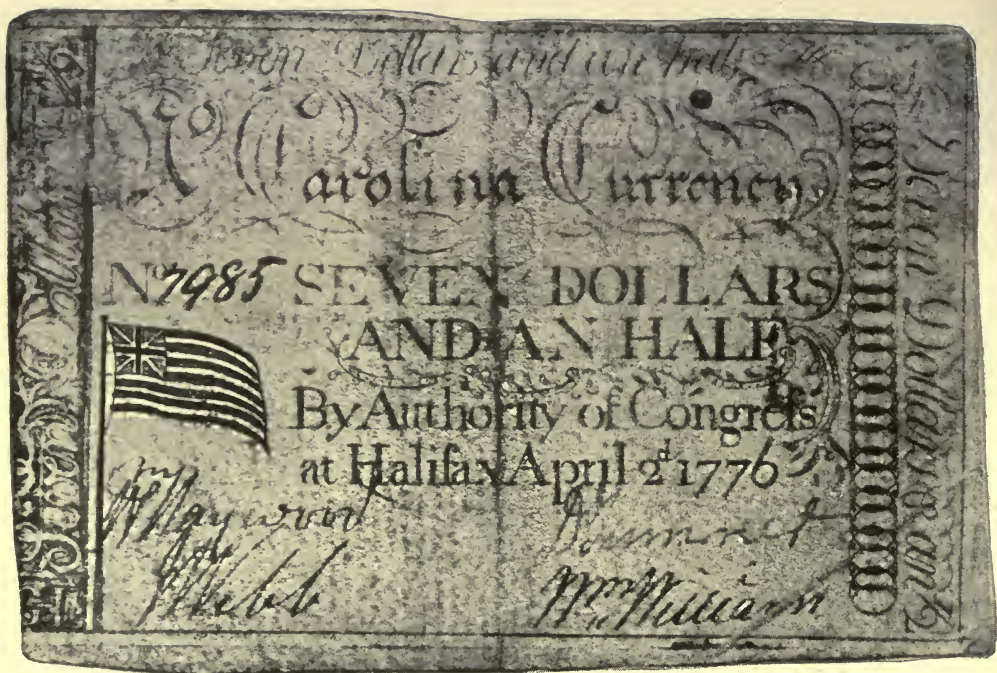 Seven Dollars and an half
No Carolina Currency
No 7985 SEVEN DOLLARS
AND AN HALF
By Authority of Congreſs
at Halifax April 2d 1776
Wm Haywood
Webb
Wm Williams
Seven Dollars & an ½